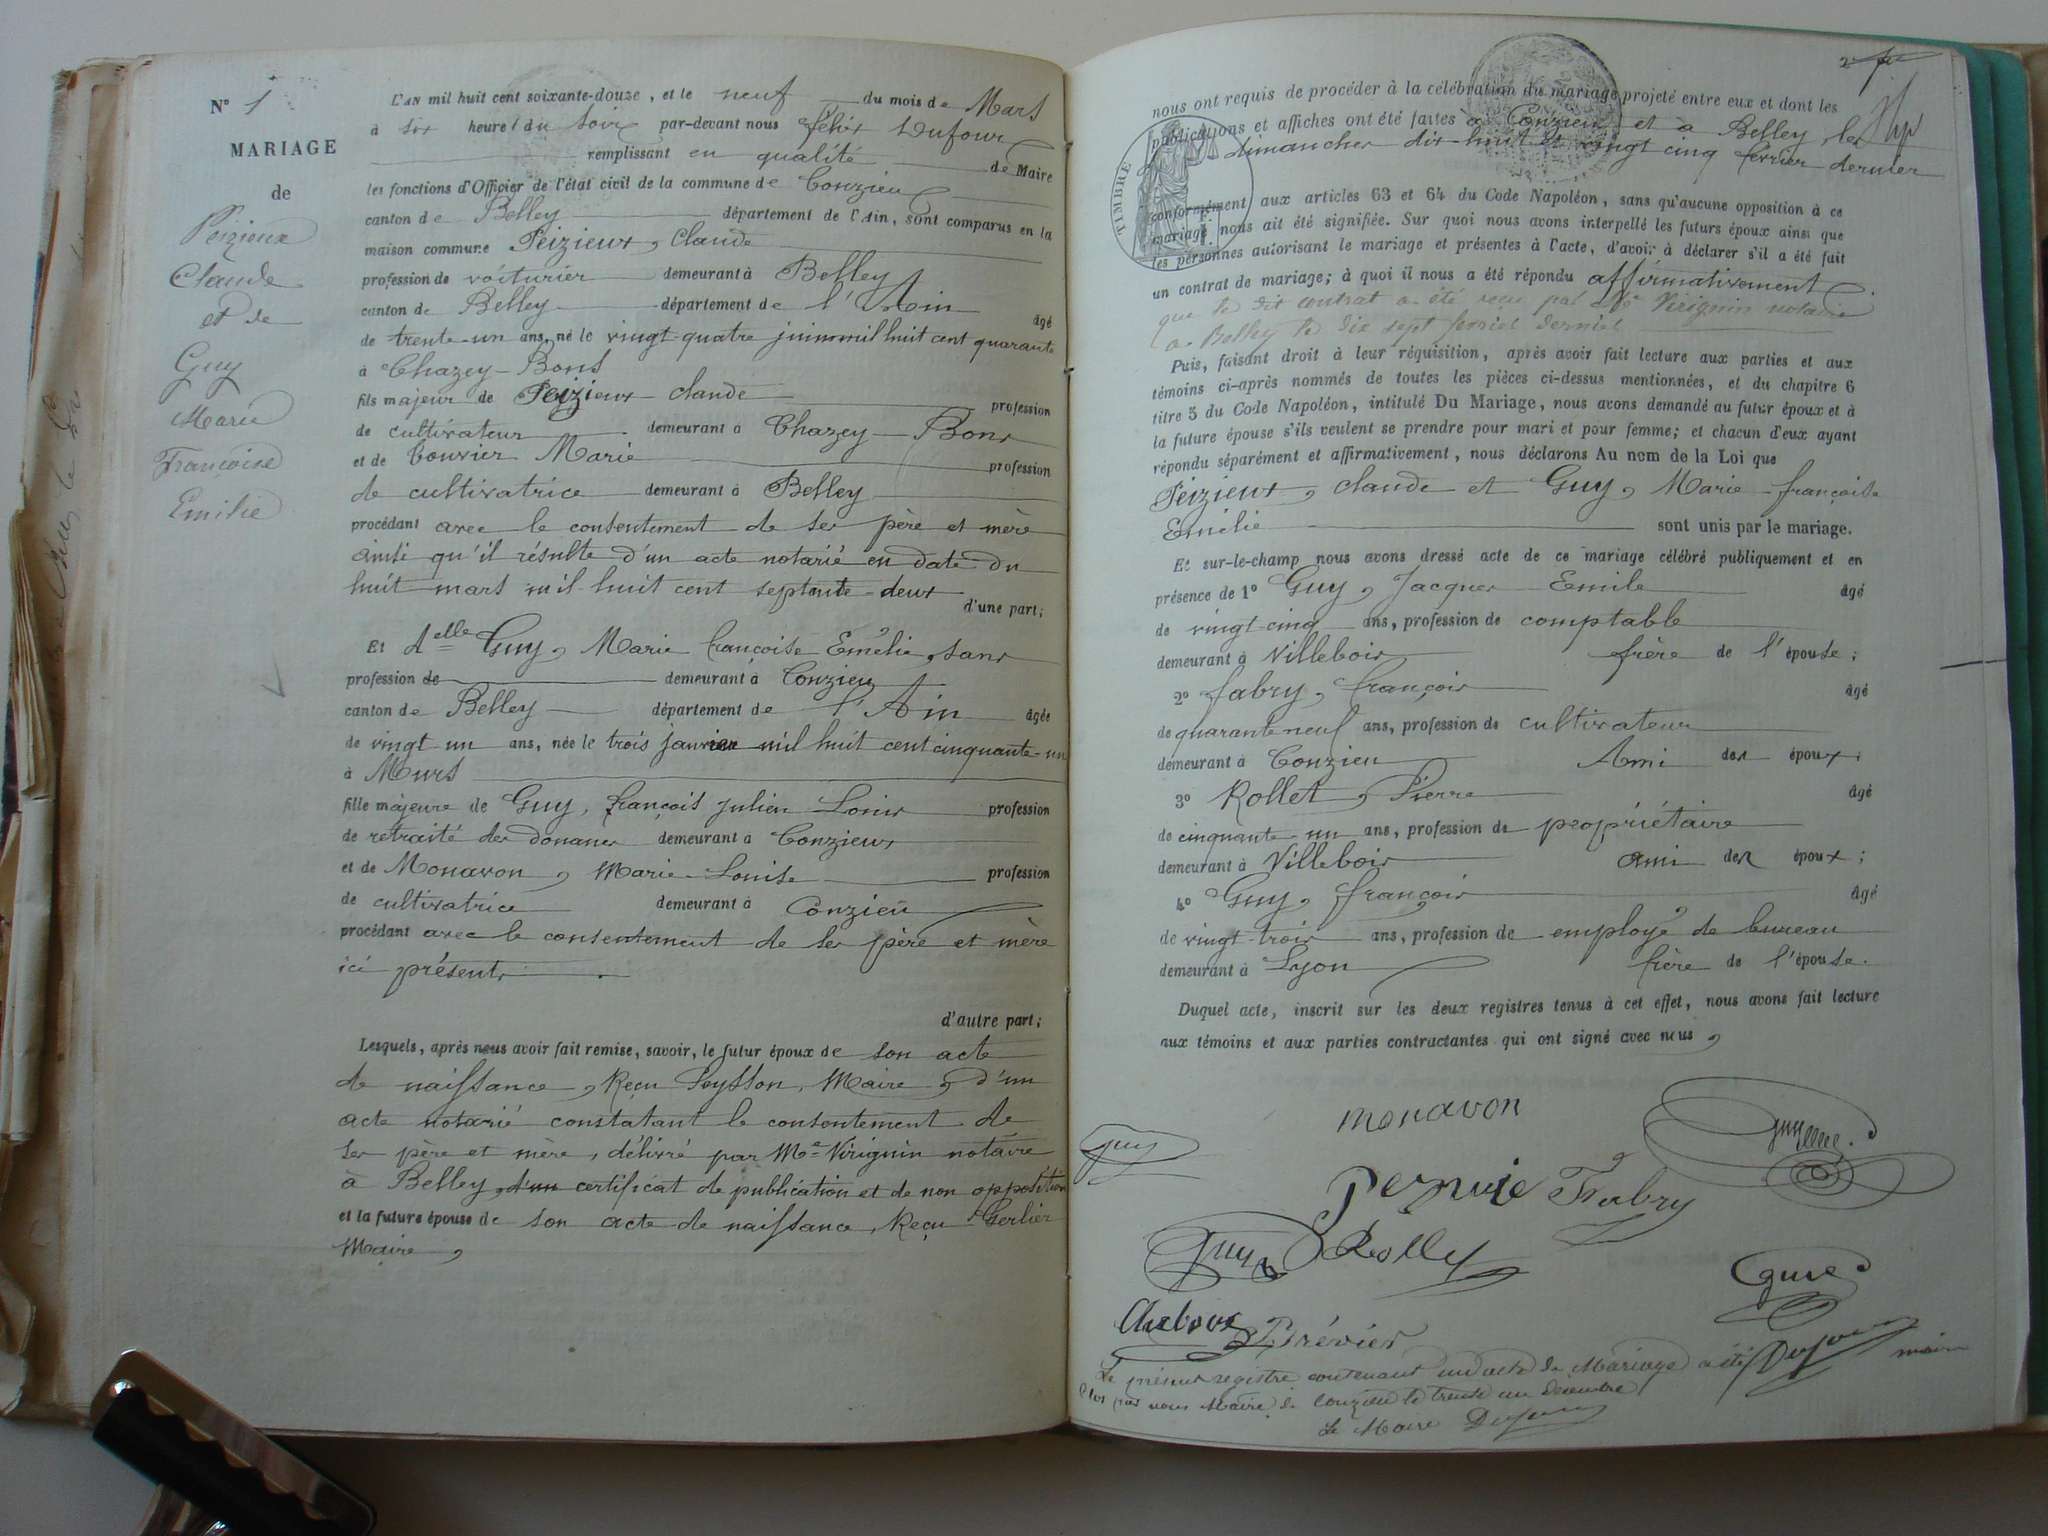 N° 1
MARIAGE
de
Peizieux
Claude
et de
Guy
Marie
Françoise
Emilie
L'AN mil huit cent soixante-douze, et le neuf du mois de Mars
à six heures du soir par-devant nous Félix Dufour
remplissant en qualité de Maire
les fonctions d'Officier de l'état civil de la commune de Conzieu
canton de Belley département de l'Ain, sont comparus en la
maison commune Peizieux, Claude
profession de voiturier demeurant à Belley
canton de Belley département de l'Ain âgé
de trente-un ans, né le vingt-quatre juin mil huit cent quarante
à Chazey-Bons
fils majeur de Peizieux Claude profession
de cultivateur demeurant à Chazey-Bons
et de Bouvier Marie profession
de cultivatrice demeurant à Belley
procédant avec le consentement de ses père et mère
ainsi qu'il résulte d'un acte notarié en date du
huit mars mil huit cent septante-deux
d'une part;
Et Delle Guy, Marie Françoise Emélie, sans
profession de demeurant à Conzieu
canton de Belley département de l'Ain âgée
de vingt un ans, née le trois janvier mil huit cent cinquante-un
à Murs
fille majeure de Guy, François Julien Louis profession
de retraité des douanes demeurant à Conzieux
et de Monavon, Marie-Louise profession
de cultivatrice demeurant à Conzieu
procédant avec le consentement de ses père et mère
ici présents.
d'autre part;
Lesquels, après nous avoir fait remise, savoir, le futur époux de son acte
de naissance, Reçu Peysson, Maire, d'un
acte notarié constatant le consentement de
ses père et mère, délivré par Me Virignin notaire
à Belley, d'un certificat de publication et de non opposition
et la future épouse de son acte de naissance, Reçu Gerlier
Maire,
nous ont requis de procéder à la célébration du mariage projeté entre eux et dont les
publications et affiches ont été faites à Conzieu et à Belley, les
dimanches dix-huit et vingt cinq février dernier
conformément aux articles 63 et 64 du Code Napoléon, sans qu'aucune opposition à ce
mariage nous ait été signifiée. Sur quoi nous avons interpellé les futurs époux ainsi que
les personnes autorisant le mariage et présentes à l'acte, d'avoir à déclarer s'il a été fait
un contrat de mariage; à quoi il nous a été répondu affirmativement
que le dit contrat a été reçu par Me Virignin notaire
à Belley le dix sept février dernier
Puis, faisant droit à leur réquisition, après avoir fait lecture aux parties et aux
témoins ci-après nommés de toutes les pièces ci-dessus mentionnées, et du chapitre 6
titre 5 du Code Napoléon, intitulé Du Mariage, nous avons demandé au futur époux et à
la future épouse s'ils veulent se prendre pour mari et pour femme; et chacun d'eux ayant
répondu séparément et affirmativement, nous déclarons Au nom de la Loi que
Peizieux, Claude et Guy, Marie-Françoise
Emélie sont unis par le mariage.
Et sur-le-champ nous avons dressé acte de ce mariage célébré publiquement et en
présence de 1° Guy, Jacques Emile âgé
de vingt-cinq ans, profession de comptable
demeurant à Villebois frère de l'épouse;
2° Fabry, François âgé
de quarante neuf ans, profession de cultivateur
demeurant à Conzieu Ami des époux;
3° Rollet, Pierre âgé
de cinquante-un ans, profession de propriétaire
demeurant à Villebois ami des époux;
4° Guy, François âgé
de vingt-trois ans, profession de employé de bureau
demeurant à Lyon frère de l'épouse.
Duquel acte, inscrit sur les deux registres tenus à cet effet, nous avons fait lecture
aux témoins et aux parties contractantes qui ont signé avec nous,
TIMBRE
monavon
guy
Fabry
Guy
Prévier
Le présent registre contenant un acte de Mariage a été
clos par nous Maire de Conzieu le trente un Décembre
Dufour maire
Le Maire Dufour